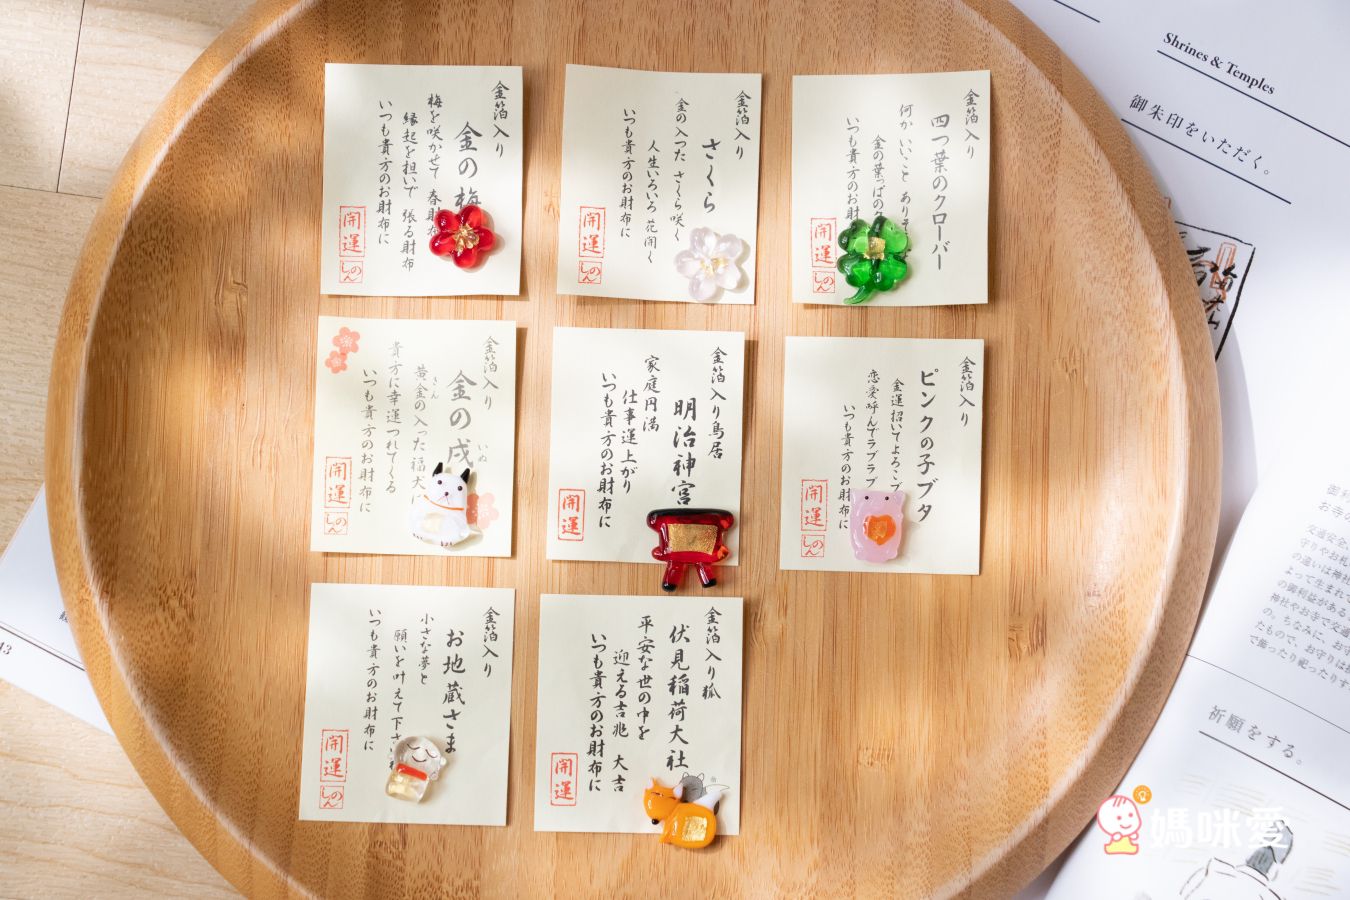 Shrines & Temples
御朱印をいただく。
金箔入り
金の梅
梅を咲かせて 春財布
縁起を担いで 張る財布
いつも貴方のお財布に
開運
しのん
金箔入り
さくら
金の入った さくら咲く
人生いろいろ 花開く
いつも貴方のお財布に
開運
しのん
金箔入り
四つ葉のクローバー
何かいいこと ありそ
金の葉っぱの
いつも貴方のお財
開運
しのん
金箔入り
金の戌
いぬ
黄金の入った福犬
きん
貴方に幸運つれてくる
いつも貴方のお財布に
開運
しのん
金箔入り鳥居
明治神宮
家庭円満
仕事運上がり
いつも貴方のお財布に
開運
金箔入り
ピンクの子ブタ
金運招いてよろこブ
恋愛呼んでラブラブ
いつも貴方のお財布に
開運
しのん
金箔入り
お地蔵さま
小さな夢と
願いを叶えて下さい
いつも貴方のお財布に
開運
しのん
金箔入り狐
伏見稲荷大社
平安な世の中を
迎える吉兆 大吉
いつも貴方のお財布に
開運
祈願をする。
媽咪愛